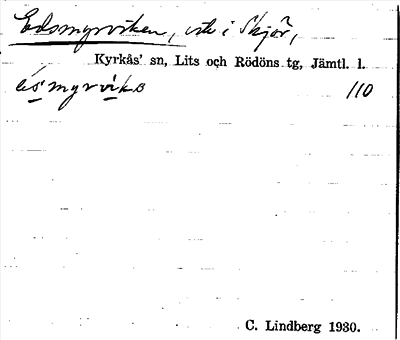 Edsmyrviken, vik i Skjör,
Kyrkås' sn, Lits och Rödöns tg, Jämtl. l.
ésmyrvikɘ 110
C. Lindberg 1930.